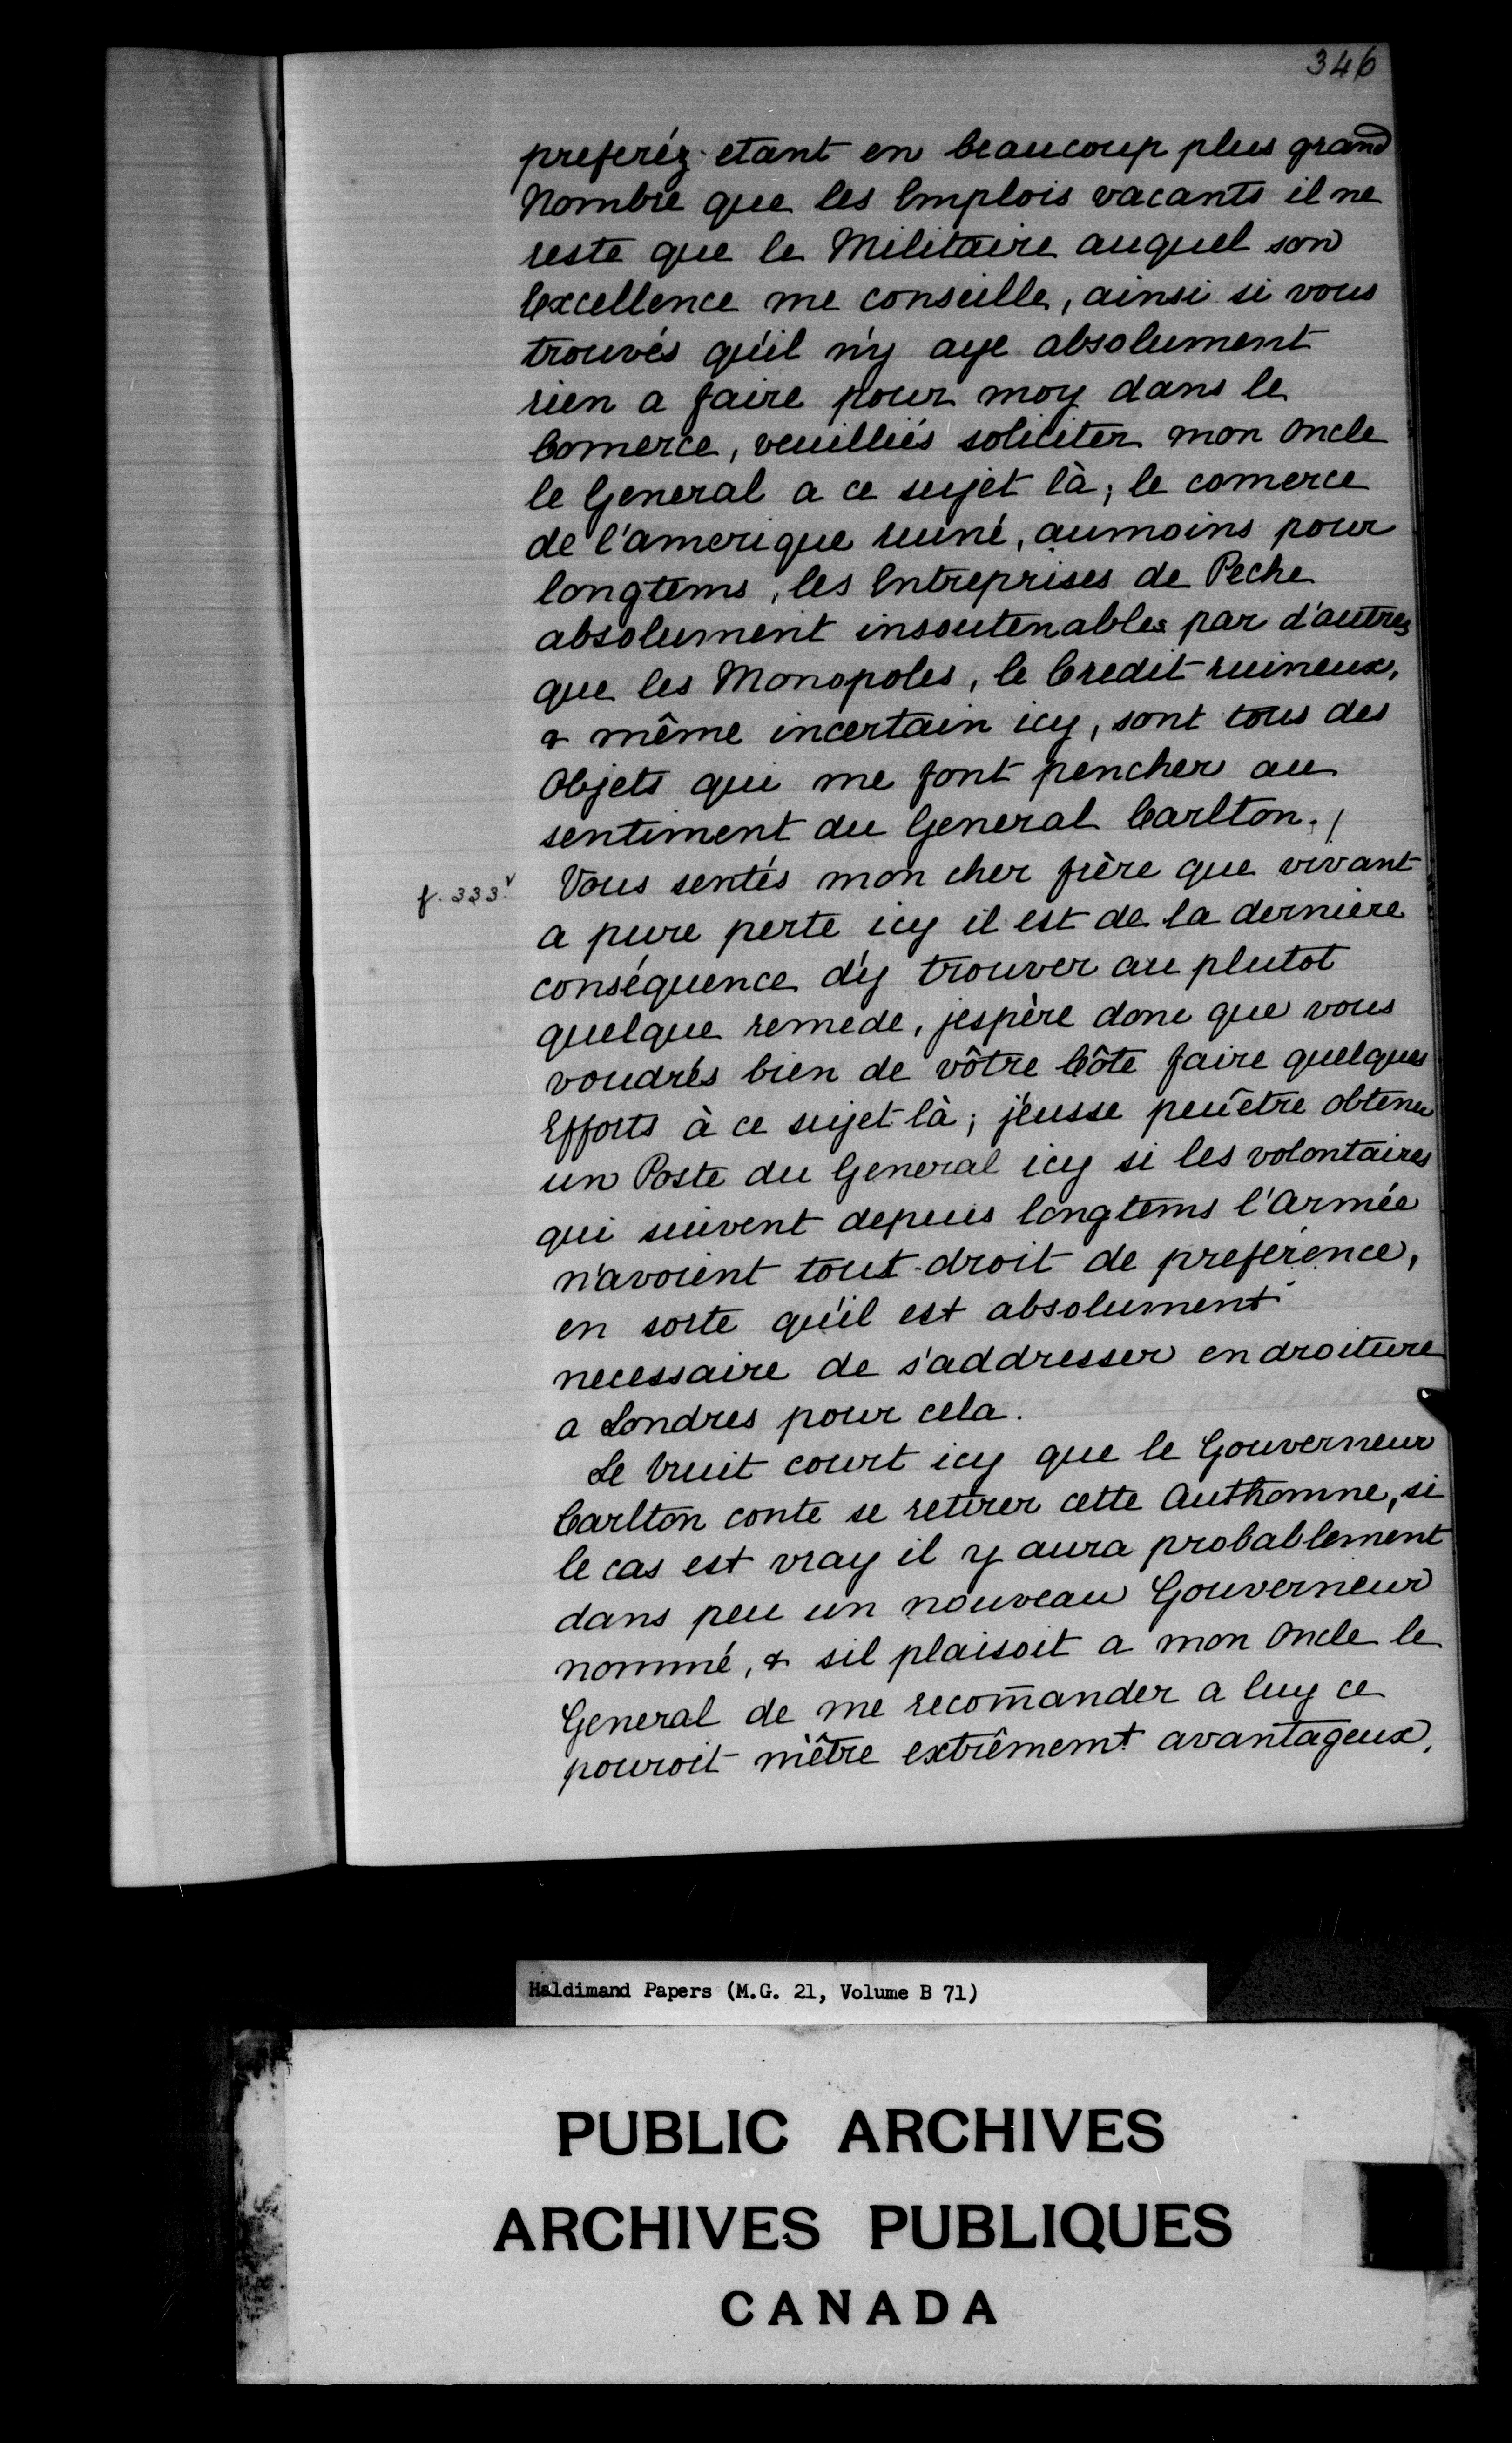 346
preferéz etant en beaucoup plus grand
Nombre que les Emplois vacants il ne
reste que le Militaire auquel son
Excellence me conseille, ainsi si vous
trouvés qu'il n'y aye absolument
rien a faire pour moy dans le
Comerce, veuilliés soliciter mon Oncle
le General a ce sujet là; le comerce
de l'amerique ruiné, aumoins pour
longtems, les Entreprises de Peche
absolument insoutenables par d'autres
que les Monopoles, le Credit ruineux,
& même incertain icy, sont tous des
Objets qui me font pencher au
sentiment du General Carlton./
f. 333v. Vous sentés mon cher frère que vivant
a pure perte icy il est de la derniere
conséquence d'y trouver au plutot
quelque remede, jespère donc que vous
voudrés bien de vôtre Côte faire quelques
Efforts à ce sujet là; j'eusse peu etre obtenu
un Poste du General icy si les volontaires
qui suivent depuis longtems l'Armée
n'avoient tout droit de preference,
en sorte qu'il est absolument
necessaire de s'addresser en droiture
a Londres pour cela.
Le bruit court icy que le Gouverneur
Carlton conte se retirer cette Authomne, si
le cas est vray il y aura probablement
dans peu un nouveau Gouverneur
nommé, & sil plaisoit a mon Oncle le
General de me recom̄ander a luy ce
pouroit m'être extrêmemt avantageux,
Haldimand Papers (M.G. 21, Volume B 71)
PUBLIC ARCHIVES
ARCHIVES PUBLIQUES
CANADA